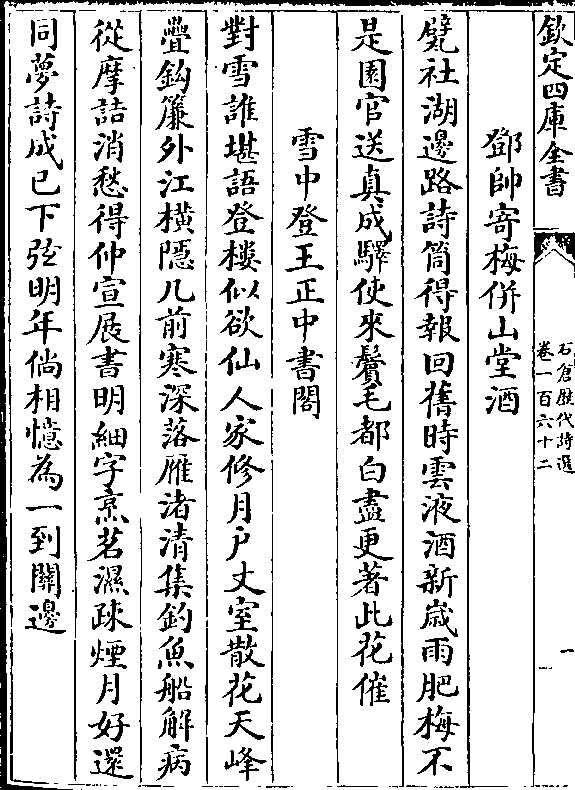 欽定四庫全書
石倉歷代詩選
卷一百六十二
一
鄧帥寄梅併山堂酒
甓社湖邊路詩筒得報回舊時雲液酒新歲雨肥梅不
是園官送真成驛使來鬢毛都白盡更著此花催
雪中登王正中書閣
對雪誰堪語登樓似欲仙人家修月户丈室散花天峰
疊鈎簾外江橫隱几前寒深落雁渚清集釣魚船解病
從摩詰消愁得仲宣展書明細字烹茗濕疎煙月好還
同夢詩成已下弦明年倘相憶為一到關邊